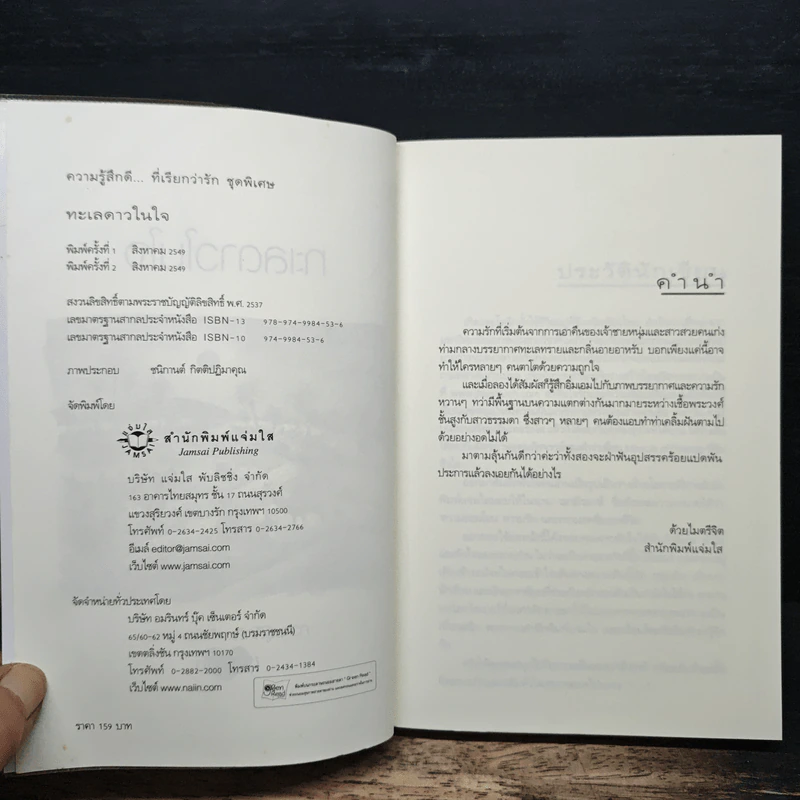 ความรู้สึกดี... ที่เรียกว่ารัก ชุดพิเศษ
ทะเลดาวในใจ
พิมพ์ครั้งที่ 1 สิงหาคม 2549
พิมพ์ครั้งที่ 2 สิงหาคม 2549
สงวนลิขสิทธิ์ตามพระราชบัญญัติลิขสิทธิ์ พ.ศ. 2537
เลขมาตรฐานสากลประจำหนังสือ ISBN-13 978-974-9984-53-6
เลขมาตรฐานสากลประจำหนังสือ ISBN-10 974-9984-53-6
ภาพประกอบ ชนิกานต์ กิตติปฎิมาคุณ
จัดพิมพ์โดย
แจ่มใส
JAMSAI
สำนักพิมพ์แจ่มใส
Jamsai Publishing
บริษัท แจ่มใส พับลิชชิ่ง จำกัด
163 อาคารไทยสมุทร ชั้น 17 ถนนสุรวงศ์
แขวงสุริยวงศ์ เขตบางรัก กรุงเทพฯ 10500
โทรศัพท์ 0-2634-2425 โทรสาร 0-2634-2766
อีเมล์ editor@jamsai.com
เว็บไซต์ www.jamsai.com
จัดจำหน่ายทั่วประเทศโดย
บริษัท อมรินทร์ บุ๊ค เซ็นเตอร์ จำกัด
65/60-62 หมู่ 4 ถนนชัยพฤกษ์ (บรมราชชนนี)
เขตตลิ่งชัน กรุงเทพฯ 10170
โทรศัพท์ 0-2882-2000 โทรสาร 0-2434-1384
เว็บไซต์ www.naiin.com
ราคา 159 บาท
คำนำ
ความรักที่เริ่มต้นจากการเอาคืนของเจ้าชายหนุ่มและสาวสวยคนเก่ง
ท่ามกลางบรรยากาศทะเลทรายและกลิ่นอายอาหรับ บอกเพียงแค่นี้อาจ
ทำให้ใครหลายๆ คนตาโตด้วยความถูกใจ
และเมื่อลองได้สัมผัสก็รู้สึกอิ่มเอมไปกับภาพบรรยากาศและความรัก
หวานๆ ทว่ามีพื้นฐานบนความแตกต่างกันมากมายระหว่างเชื้อพระวงศ์
ชั้นสูงกับสาวธรรมดา ซึ่งสาวๆ หลายๆ คนต้องแอบทำท่าเคลิ้มฝันตามไป
ด้วยอย่างอดไม่ได้
มาตามลุ้นกันดีกว่าค่ะว่าทั้งสองจะฝ่าฟันอุปสรรคร้อยแปดพัน
ประการแล้วลงเอยกันได้อย่างไร
ด้วยไมตรีจิต
สำนักพิมพ์แจ่มใส